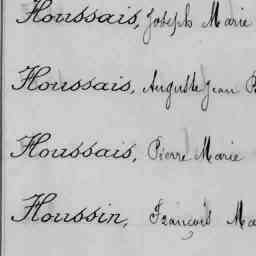 Houssais, Joseph Marie
Houssais, Auguste Jean
Houssais, Pierre Marie
Houssin, François Ma